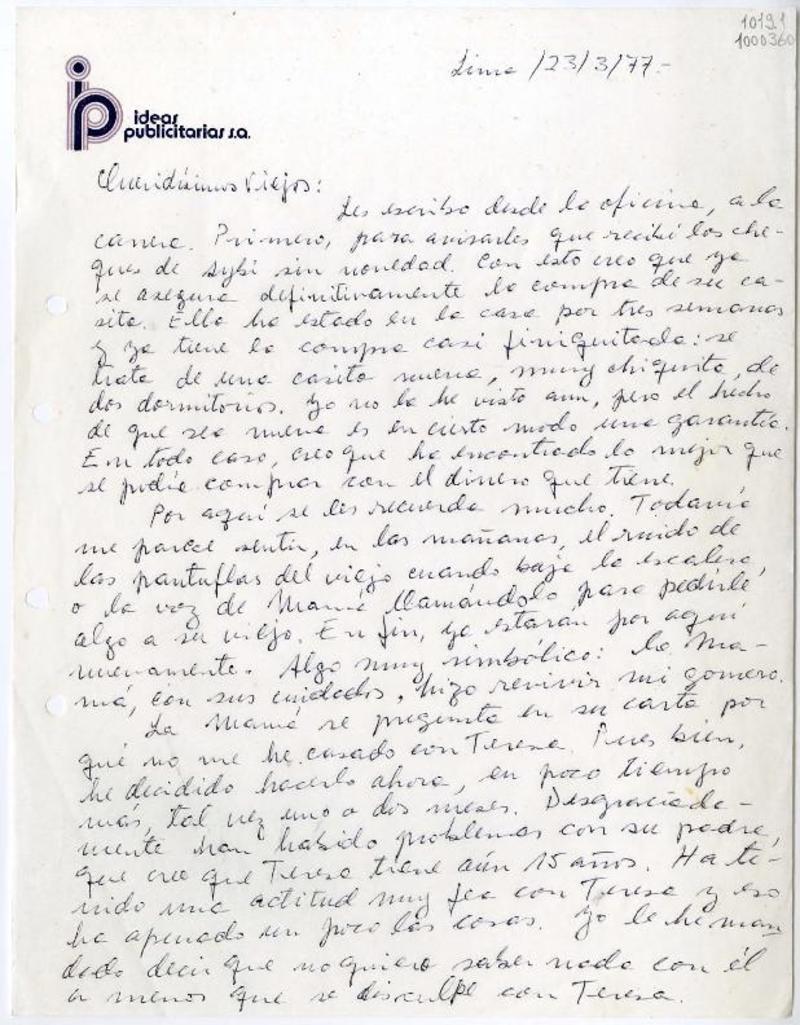 10191
1000360
Lima /23/3/77.-
ideas
publicitarias s.a.
Queridísimos Viejos:
Les escribo desde la oficina, a la
carrera. Primero, para avisarles que recibí los che-
ques de Sybi sin novedad. Con esto creo que ya
se asegura definitivamente la compra de su ca-
sita. Ella ha estado en la casa por tres semanas
y ya tiene la compra casi finiquitada: se
trata de una casita nueva, muy chiquita, de
dos dormitorios. Yo no la he visto aun, pero el hecho
de que sea nueva es en cierto modo una garantía.
En todo caso, creo que ha encontrado lo mejor que
se podía comprar con el dinero que tiene.
Por aquí se les recuerda mucho. Todavía
me parece sentir, en las mañanas, el ruido de
las pantuflas del viejo cuando baja la escalera,
o la voz de Mamá llamándolo para pedirle
algo a su viejo. En fin, ya estarán por aquí
nuevamente. Algo muy simbólico: la Ma-
má, con sus cuidados, hizo revivir mi gomero.
La Mamá se pregunta en su carta por
qué no me he casado con Teresa. Pues bien,
he decidido hacerlo ahora, en poco tiempo
más, tal vez uno o dos meses. Desgraciada-
mente han habido problemas con su padre,
que cree que Teresa tiene aún 15 años. Ha te-
nido una actitud muy fea con Teresa y eso
ha apenado un poco las cosas. Yo le he man
dado decir que no quiero saber nada con él
a menos que se disculpe con Teresa.